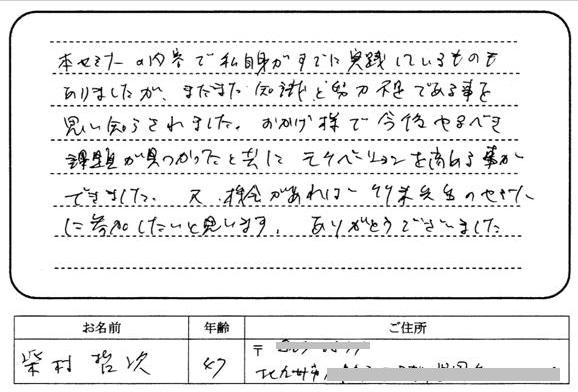 本セミナーの内容で私自身がすでに実践しているものも
ありましたが、まだまだ知識と努力不足である事を
思い知らされました。おかげ様で今後やるべき
課題が見つかったと共にモチベーションを高める事が
できました。又、機会があれば竹来先生のセミナー
に参加したいと思います。ありがとうございました
お名前 年齢 ご住所
柴村哲次 47 〒
北九州市